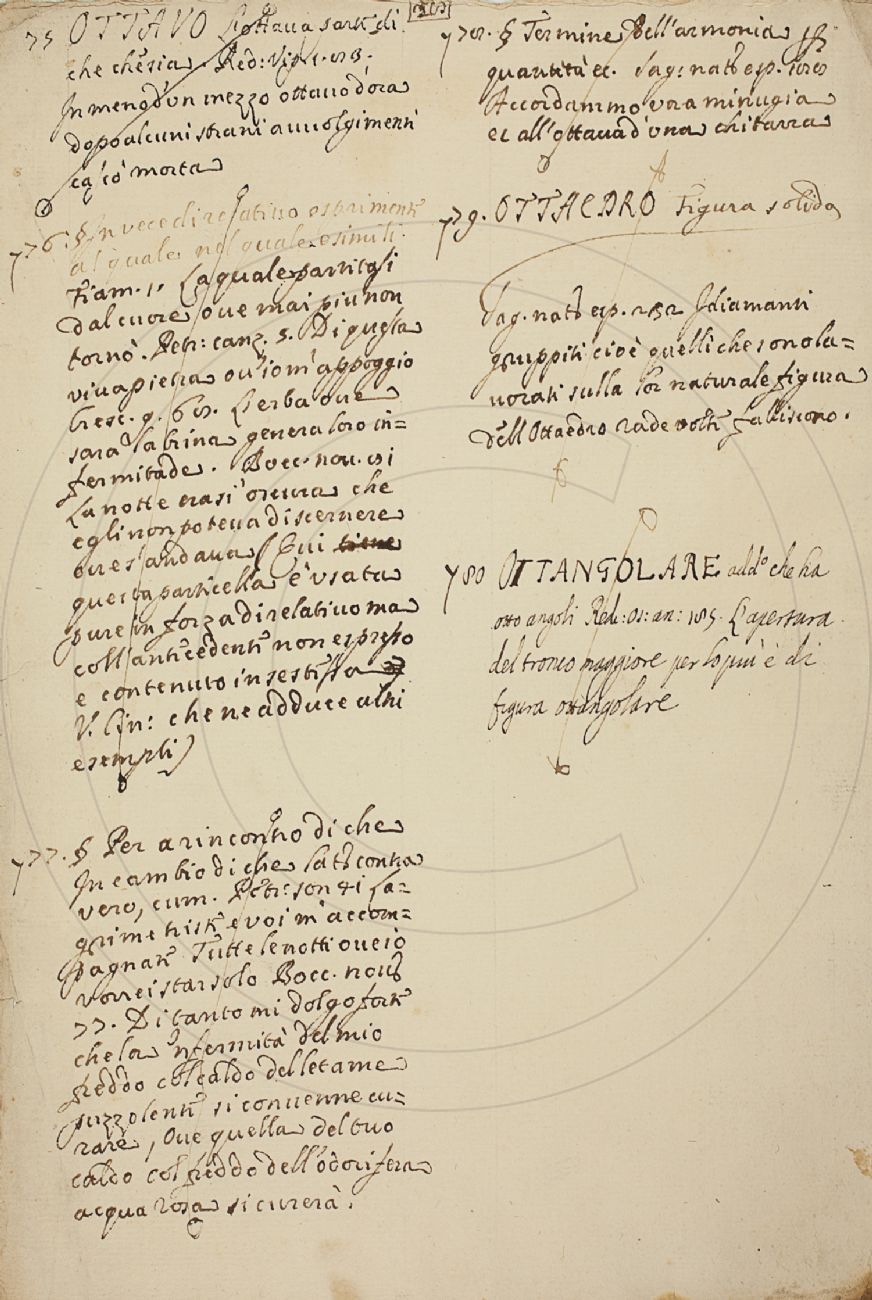 75 OTTAVO L'ottava parte di
che che sia. Red: Vip.
In meno d'un mezzo ottavo d'ora
dopo alcuni strani avvolgimenti
cascò morta
776. § In vece di relativo esprimente
al quale, nel quale, e simili.
Fiam. 1. La quale partitasi
dal cuore ove mai piu non
tornò. Petr: canz. 5. Di questa
viva pietra ov'io m'appoggio
Cresc. 9. L'erba ove
sarà la brina genera loro in=
fermitade. Bocc. nov.
La notte era sì oscura che
egli non poteva discernere
ove s'andava (Qui
questa particella è usata
pure in forza di relativo ma
coll'antecedente non espresso
e contenuto in se stessa
V. Cin: che ne adduce altri
esempli)
777. § Per a rincontro di che
In cambio di che Lat. contra
vero, cum. Petr: son La=
grime triste e voi m'accom=
pagnate Tutte le notti ov'io
vorrei star solo Bocc. nov.
77. Di tanto mi dolgo forte
che la infermità del mio
freddo col caldo del letame
puzzolente si convenne cu=
rare, Ove quella del tuo
caldo col freddo dell'odorifera
acqua rosa si curerà.
778. § Termine dell'armonia
quantità ec. Sag: nat. esp.
Accordammo una minugia
ec all'ottava d'una chitarra
779. OTTAEDRO Figura solida
Sag. nat. esp. 232 I diamanti
gruppiti cioè quelli che sono la=
vorati sulla lor naturale figura
dell'Ottaedro rade volte falliscono.
780 OTTANGOLARE add.o che ha
otto angoli Red: Os: an: 185. L'apertura
del tronco maggiore per lo piu è di
figura ottangolare